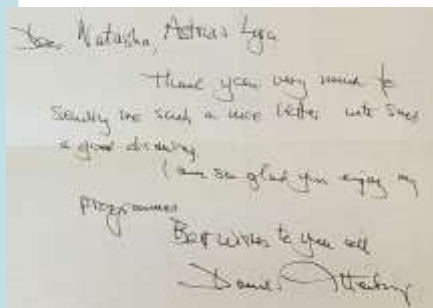 Dear Natasha, Astrid & Lyra
Thank you very much for
sending me such a nice letter with such
a good drawing
I am so glad you enjoy my
programmes
Best wishes to you all
David Attenborough